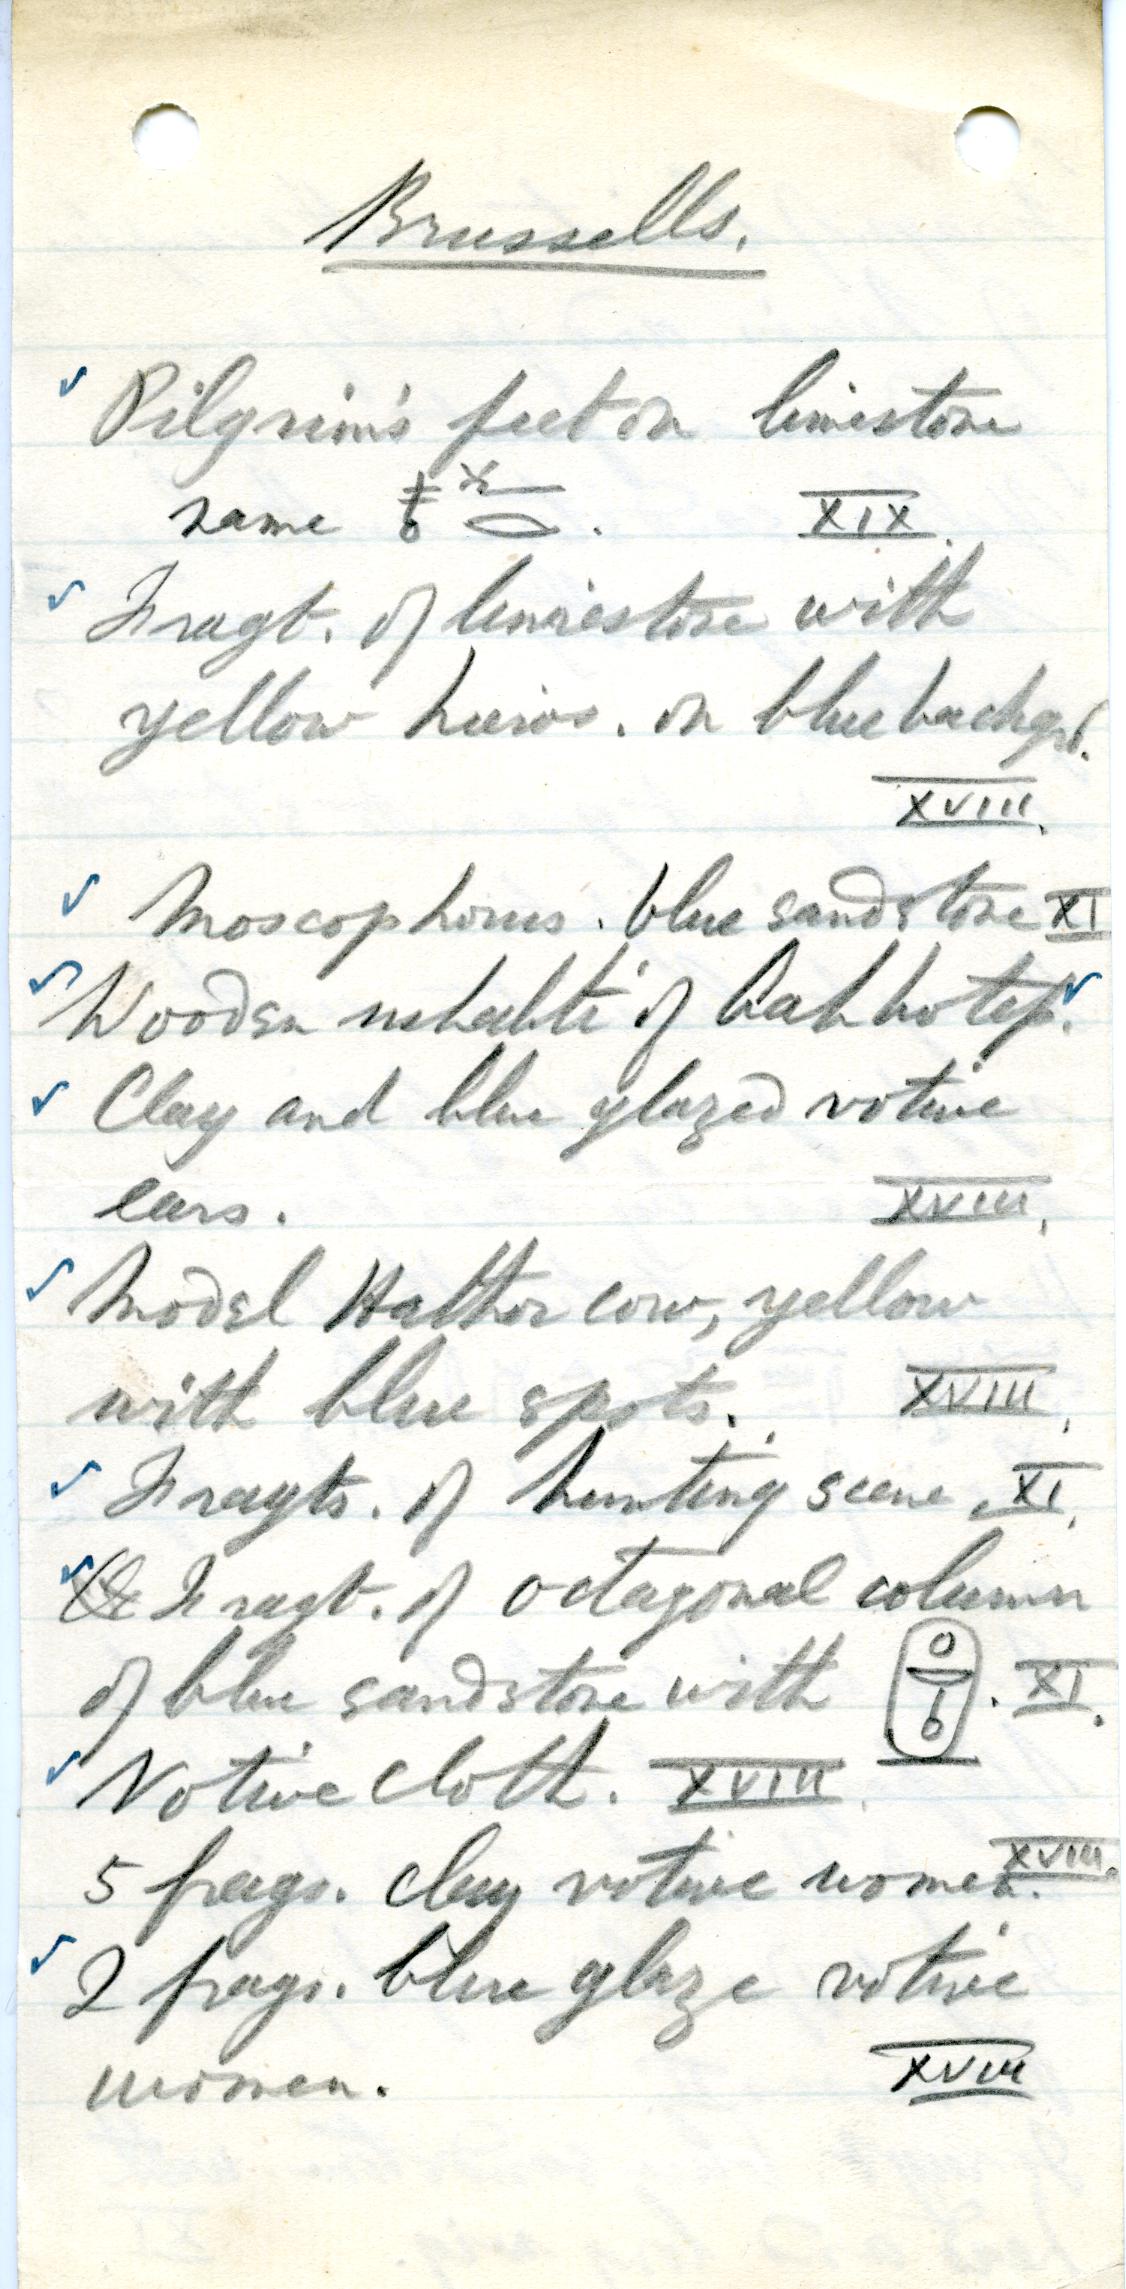 Brussells.
✓ Pilgrim's feet on limestone
name 𓄤 𓂋. XIX.
✓ Fragt. of limestone with
yellow hieros. on blue backgrd.
XVIII.
✓ Moscophorus. blue sandstone XI
✓ Wooden ushabti of Aahhotep. ✓
✓ Clay and blue glazed votive
ears. XVIII.
✓ Model Hathor cow, yellow
with blue spots. XVIII.
✓ Fragts. of hunting scene. XI.
✓ Fragt. of octagonal column
of blue sandstone with 𓍹𓇳𓎟𓊵𓍺. XI.
✓ Votive cloth. XVIII.
5 frags. clay votive women. XVIII.
✓ 2 frags. blue glaze votive
women. XVIII